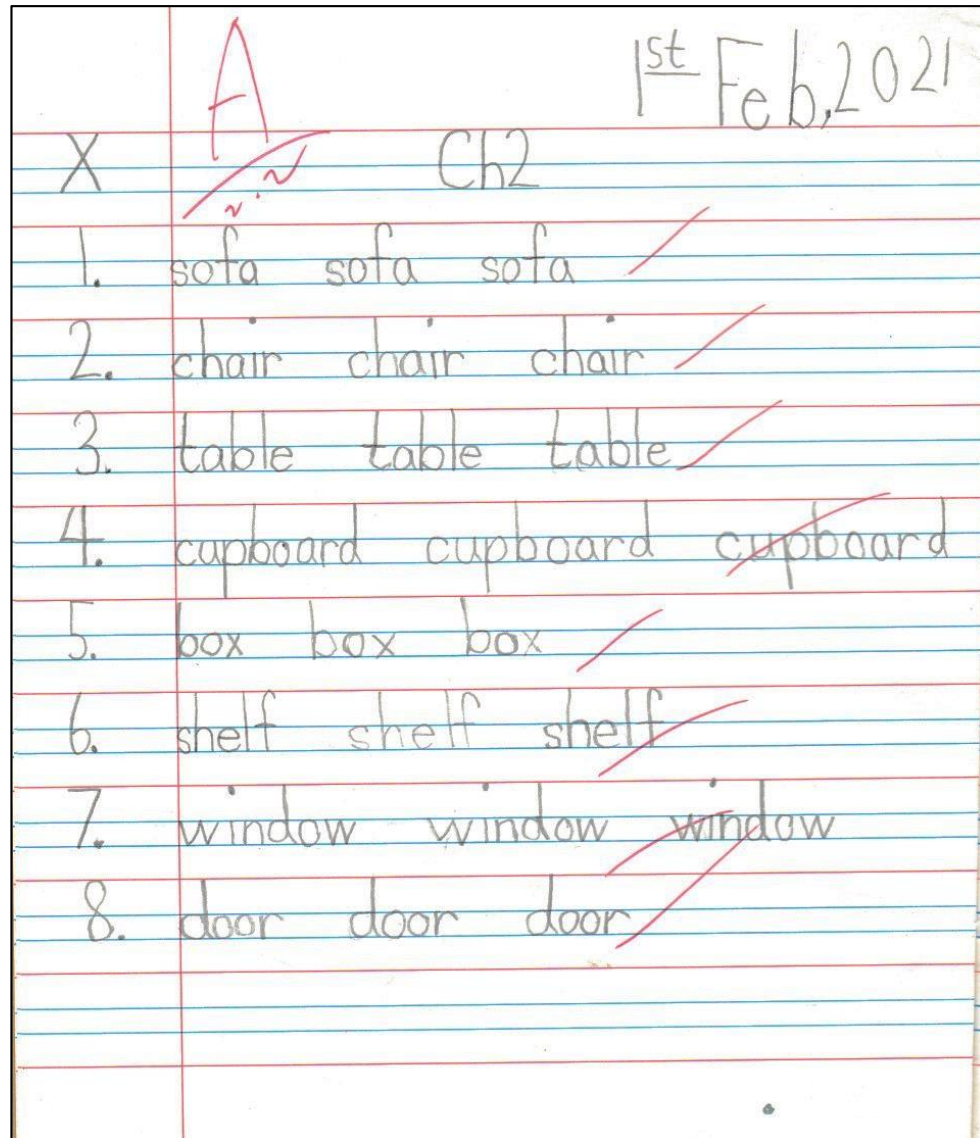 A
1st Feb, 2021
X Ch2
1. sofa sofa sofa
2. chair chair chair
3. table table table
4. cupboard cupboard cupboard
5. box box box
6. shelf shelf shelf
7. window window window
8. door door door